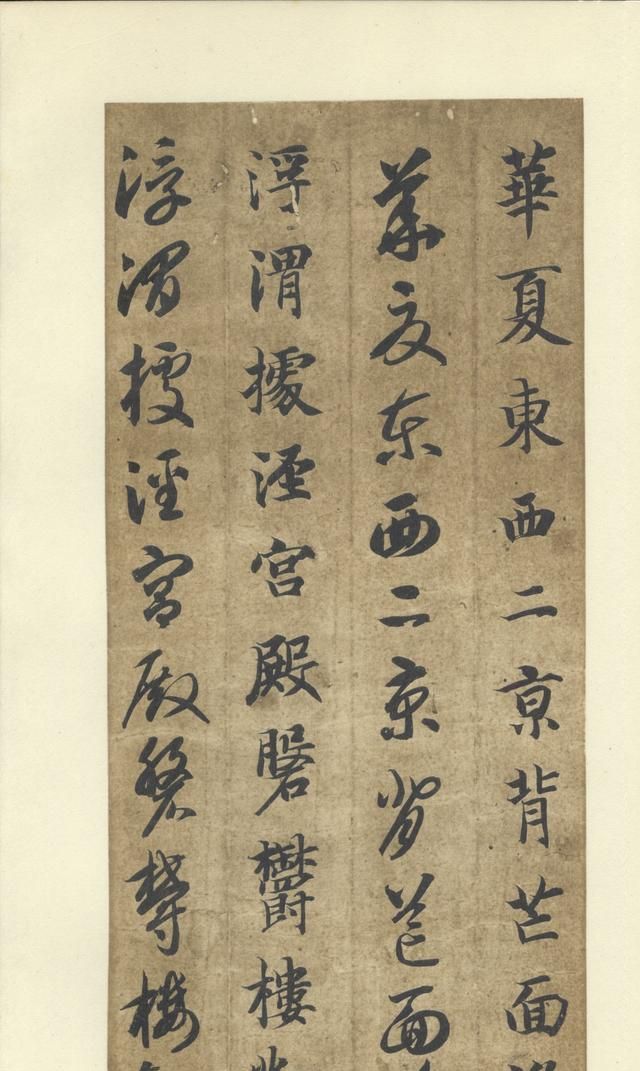 華夏東西二京背芒面
華夏東西二京背芒面
浮渭據涇宮殿磐鬱樓
浮渭據涇宮殿磐鬱樓